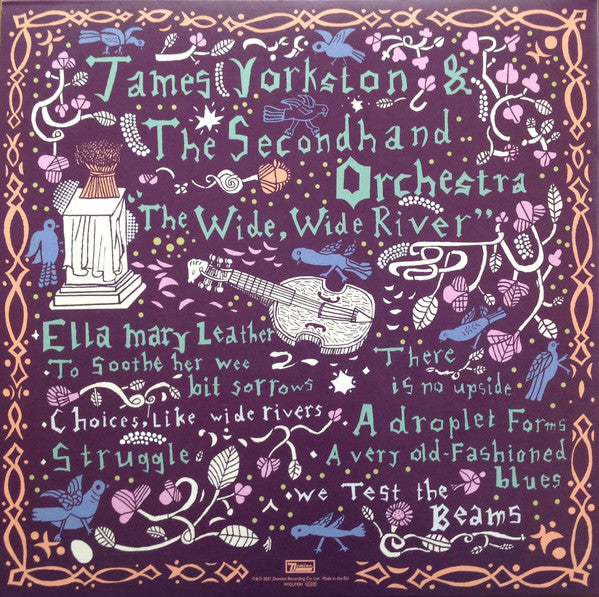 James Yorkston &
The Secondhand
Orchestra
"The Wide, Wide River"
Ella mary Leather
To Soothe her wee
bit sorrows
Choices, Like wide rivers
Struggle
There
is no upside
A droplet Forms
A very old-Fashioned
blues
we Test the
Beams
Domino
℗&© 2021 Domino Recording Co. Ltd. Made in the EU
WIGLP484